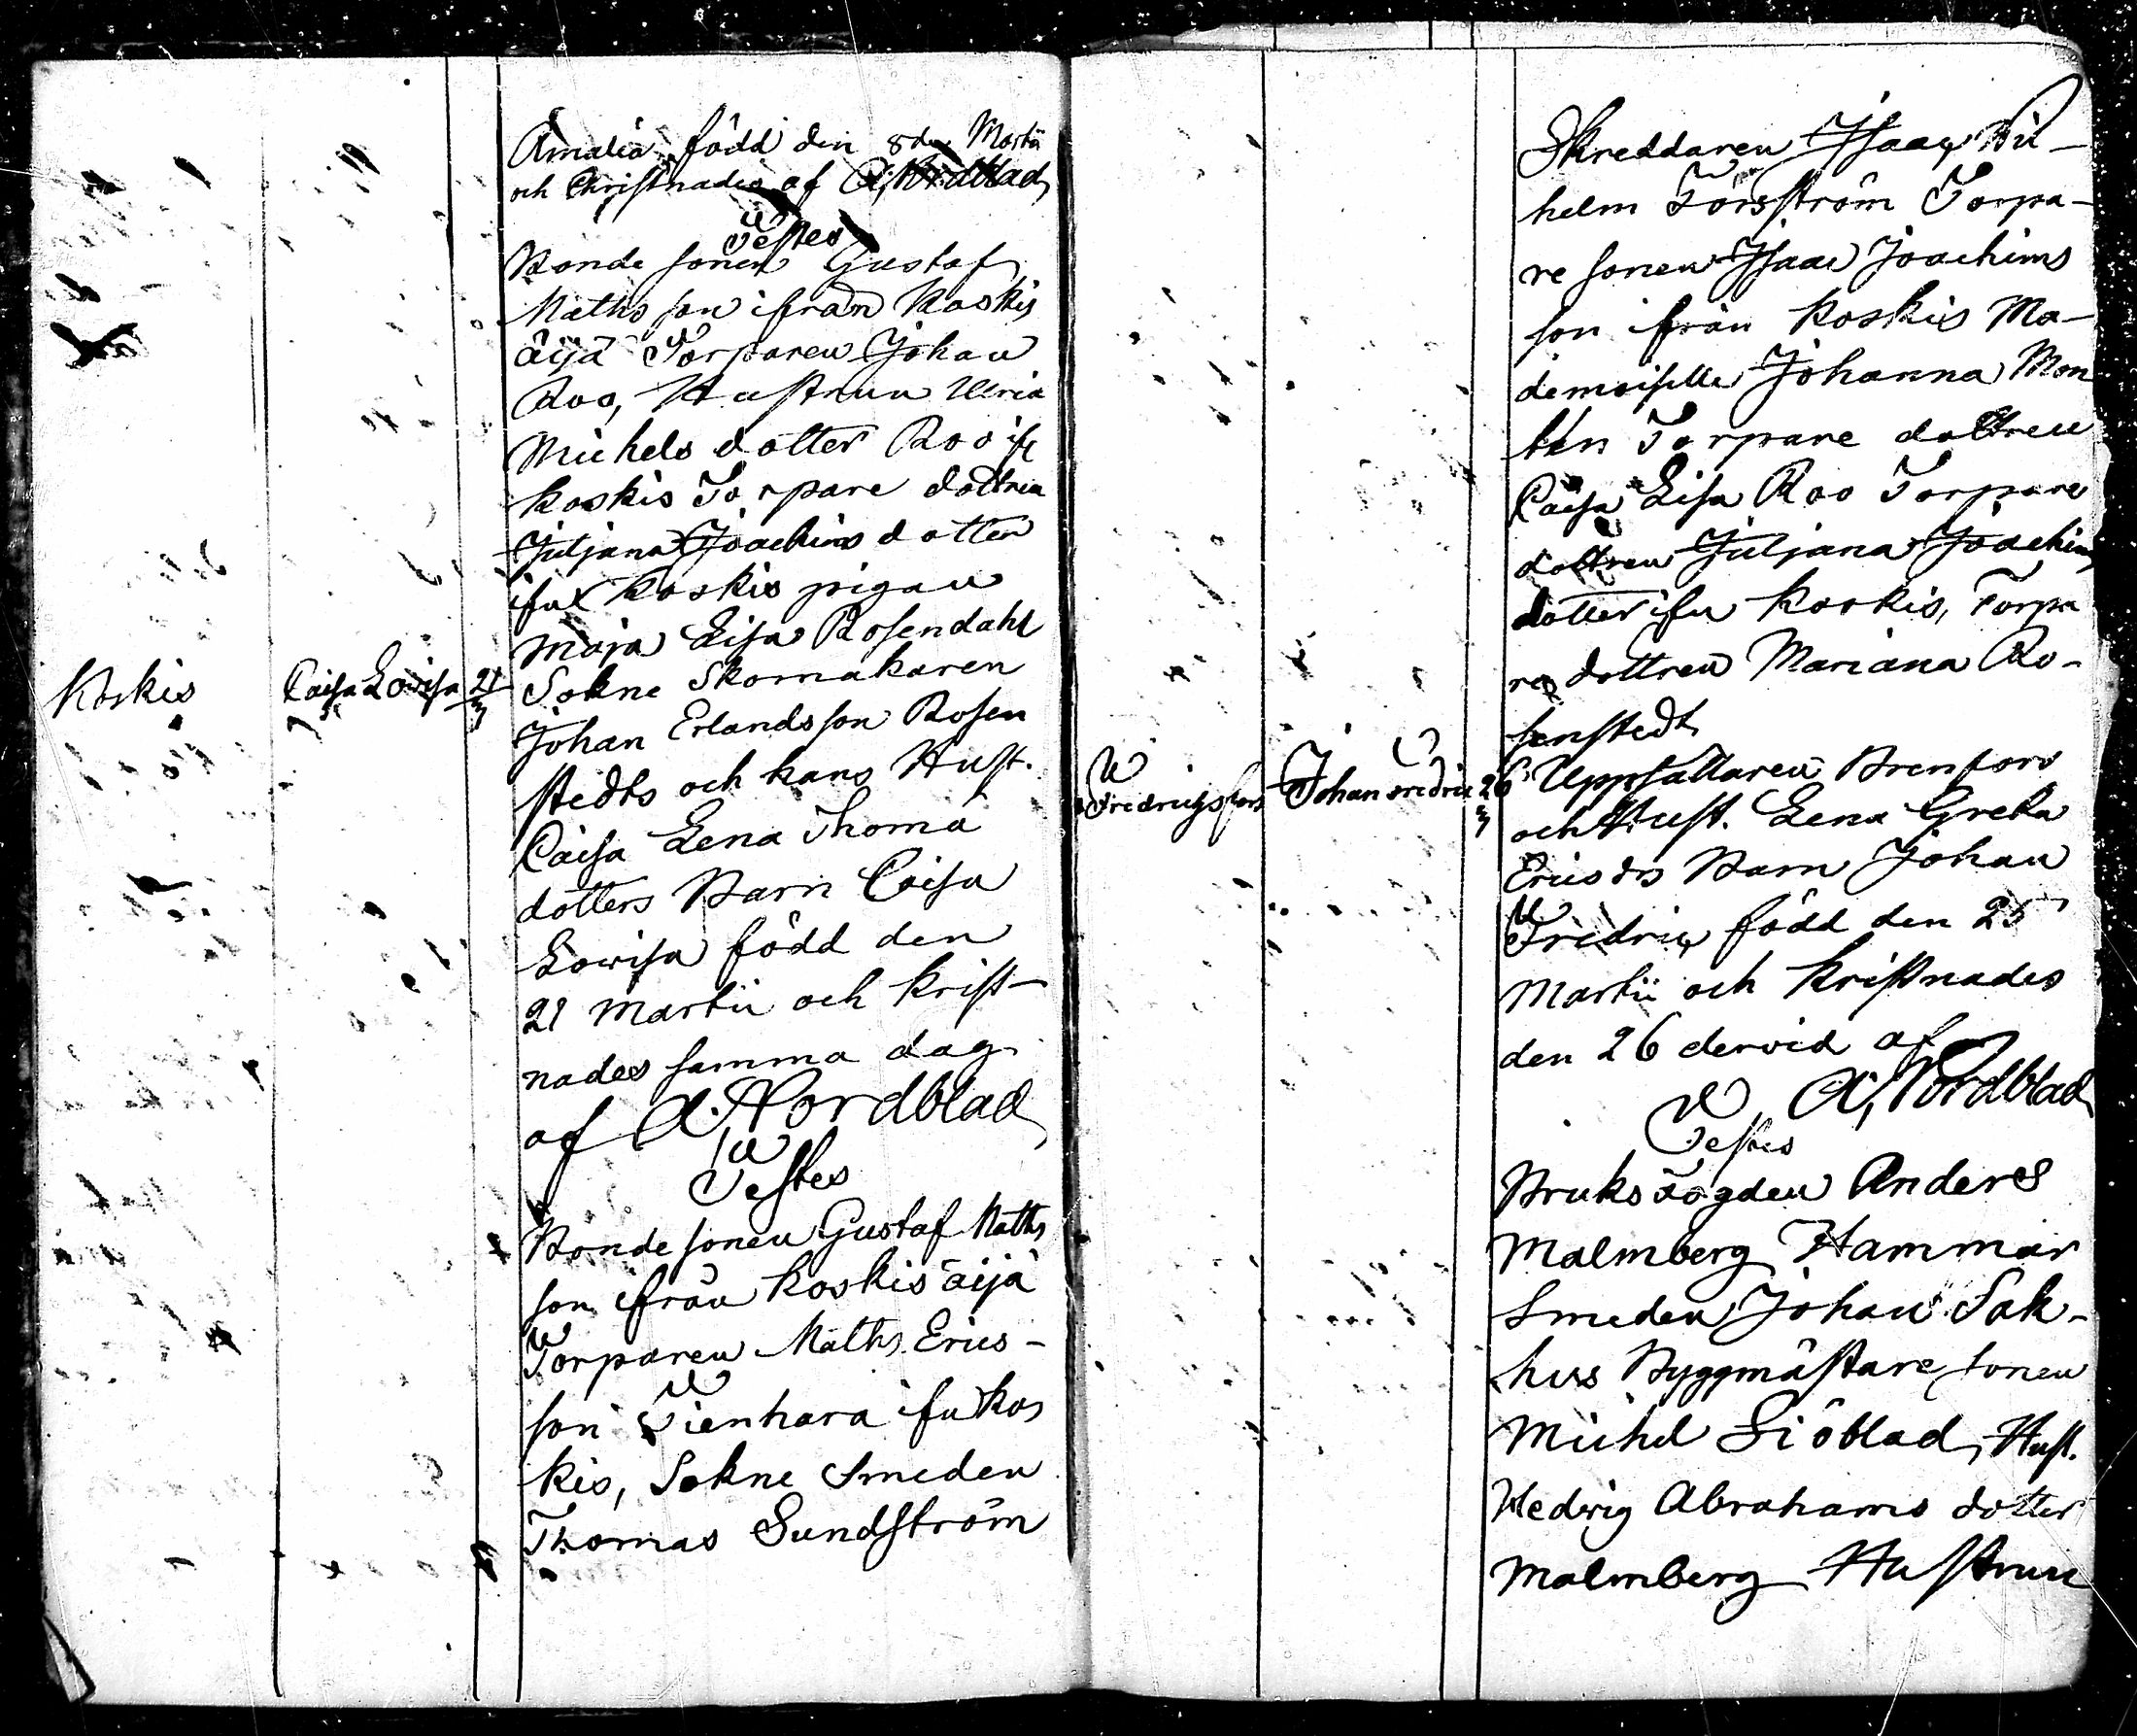 Amalia född den 8de Martii
och Christnades af A. Nordblad
Testes
Bonde sonen Gustaf
Maths son ifrån Koskis
äijä Torparen Johan
Roo, Hustrun Ulrica
Michels dotter Roo ifr
Koskis Torpare dottren
Juljana Joachims dotter
ifrå Koskis pigan
Maja Lisa Rosendahl
Koskis Caisa Lovisa 21/3 Sokne Skomakaren
Johan Erlandsson Rosen
stedts och hans Hust.
Caisa Lena Thoma
dotters Barn Caisa
Lovisa född den
21 Martii och Krist-
nades samma dag
af A. Nordblad
Testes
Bonde sonen Gustaf Maths
son ifrån Koskis äijä
Torparen Maths Erics-
son Tienhara ifn Kos
kis, Sokne Smeden
Thomas Sundström
Skreddaren Isaac Wil-
helm Forsström Torpa-
re sonen Isaac Joachims
son ifrån Koskis Ma-
demoiselle Johanna Mon
tin Torpare dottren
Caisa Lisa Roo Torpare
dottren Juljana Joachims
dotter ifn Koskis, Torpa
re dottren Mariana Ro-
senstedt
Fredricsfors Johan Fredric 26/3 Uppsattaren Brenfors
och Hust. Lena Greta
Ericsdrs Barn Johan
Fredric född den 25
Martii och Kristnades
den 26 dervid af
A. Nordblad
Testes
Bruksfogden Anders
Malmberg Hammar
Smeden Johan Sak-
hus Byggmästare sonen
Michel Siöblad, Hust.
Hedvig Abrahams dotter
Malmberg Hustrun